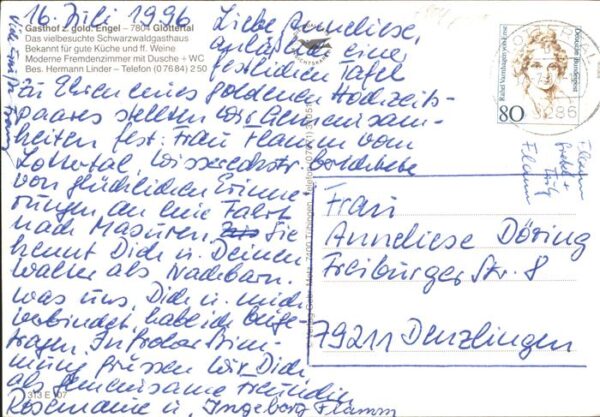 16. Juli 1996
Gasthof z. gold. Engel – 7804 Glottertal
Das vielbesuchte Schwarzwaldgasthaus
Bekannt für gute Küche und ff. Weine
Moderne Fremdenzimmer mit Dusche + WC
Bes. Hermann Linder – Telefon (07684) 250
Liebe Anneliese,
anläßlich einer
festlichen Tafel
zu Ehren eines goldenen Hochzeits-
paares stellten wir Gemeinsam-
keiten fest. Frau Flamm vom
Lottertal, wissend
von glücklichen Erinne
rungen an eine Fahrt
nach Masuren. Sie
kennt Dich u. Deinen
Walter als Nachbarn.
was uns, Dich u. mich
verbindet, habe ich beige-
tragen. In froher Stim-
mung grüssen wir Dich
als gemeinsame Freundin
Rosemarie u. Ingeborg Flamm
Viele Grüße
Flamm
+
Flamm
Rahel Varnhagen von Ense
Deutsche Bundespost
80
79286
Frau
Anneliese Döring
Freiburger Str. 8
79211 Denzlingen
313 E 107